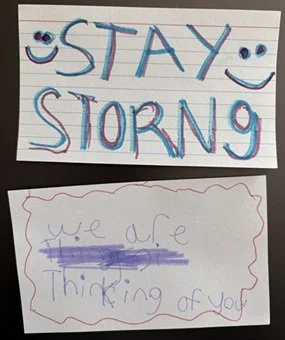 STAY
STORNG
we are
Thinking of you